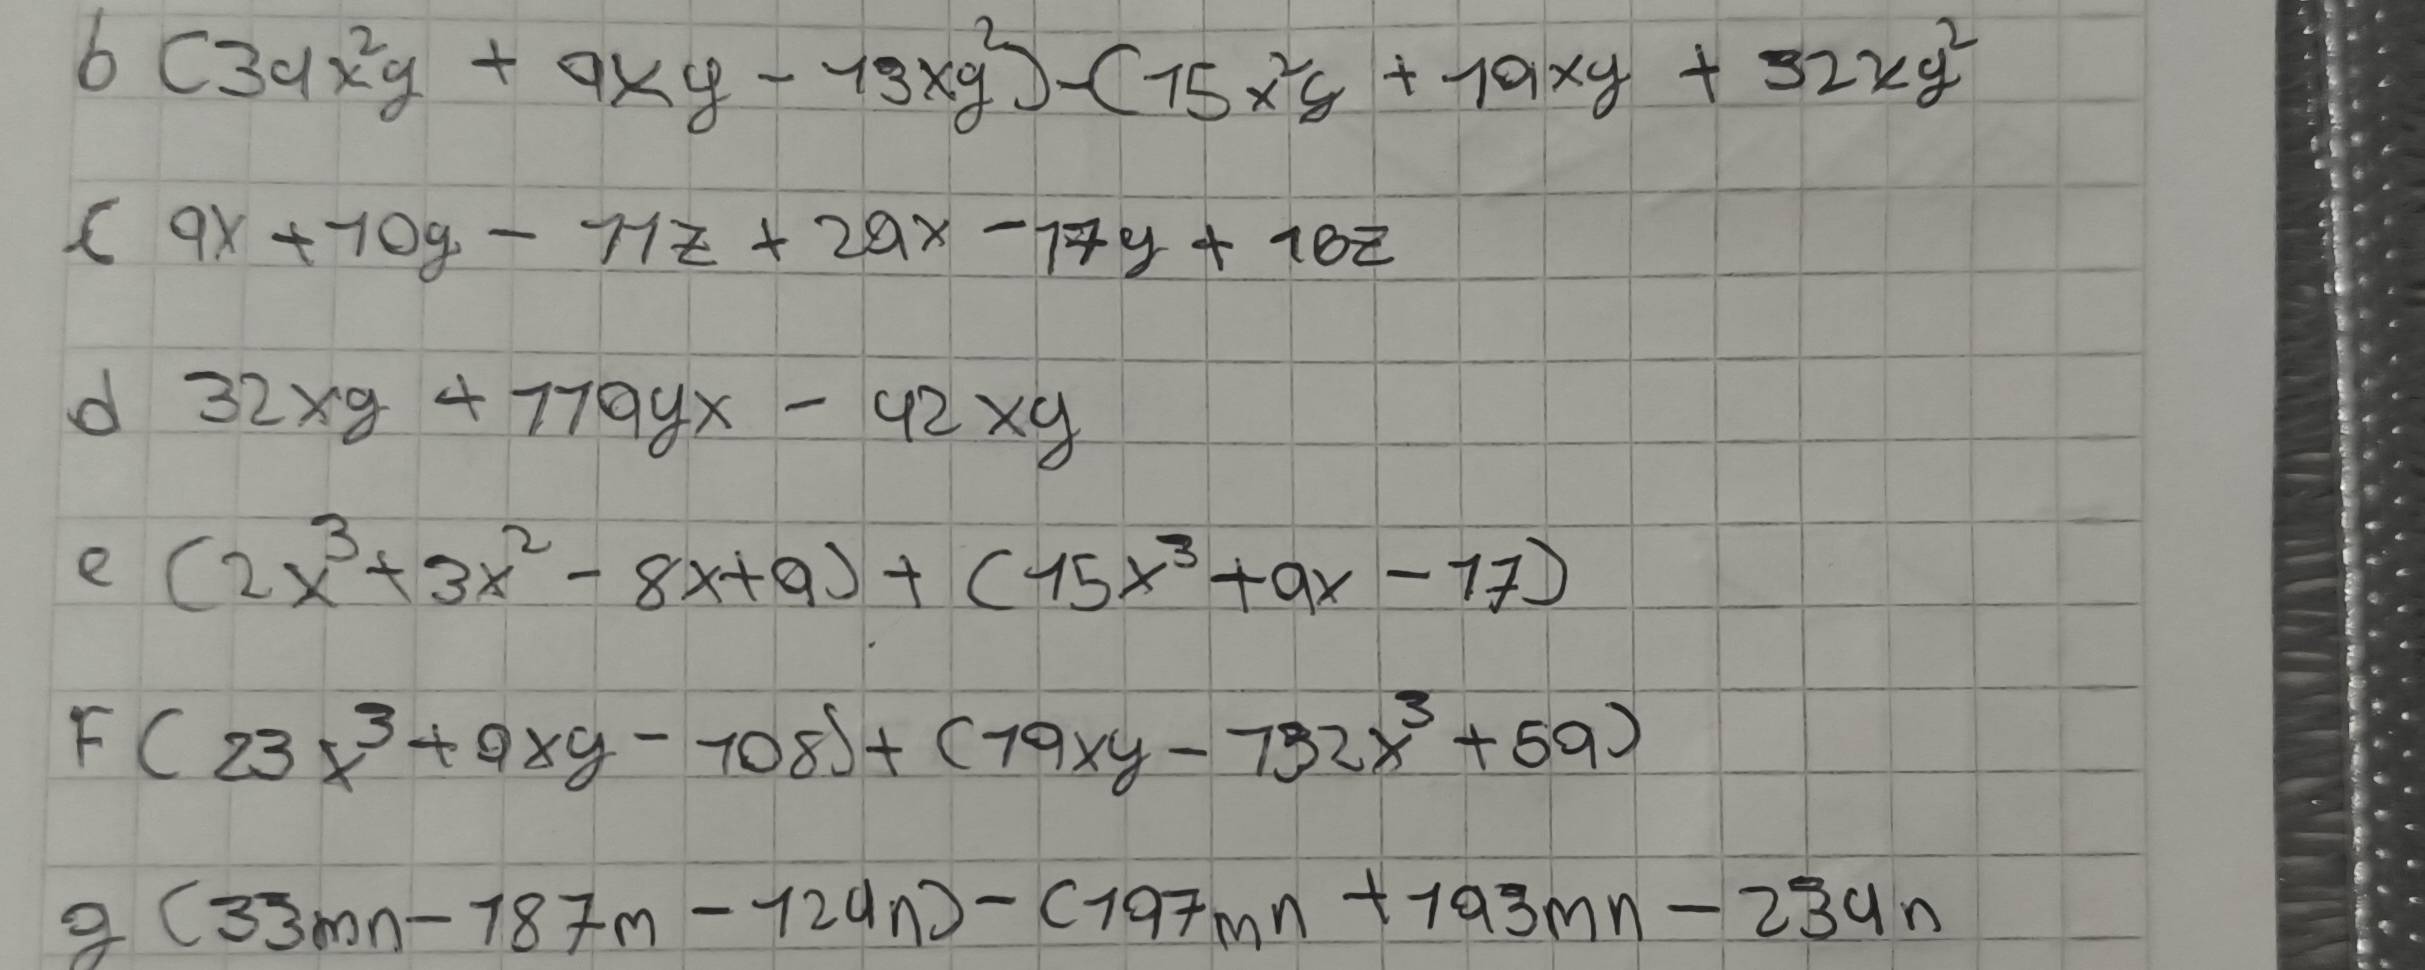 b (34x²y + 9xy - 13xy²)-(15x²y + 19xy + 32xy²
c 9x + 10y - 11z + 29x - 17y + 18z
d 32xy + 119yx - 42xy
e (2x³ + 3x² - 8x + 9) + (15x³ + 9x - 17)
F (23x³ + 9xy - 108) + (19xy - 132x³ + 59)
g (33mn - 187m - 124n) - (197mn + 193mn - 234n